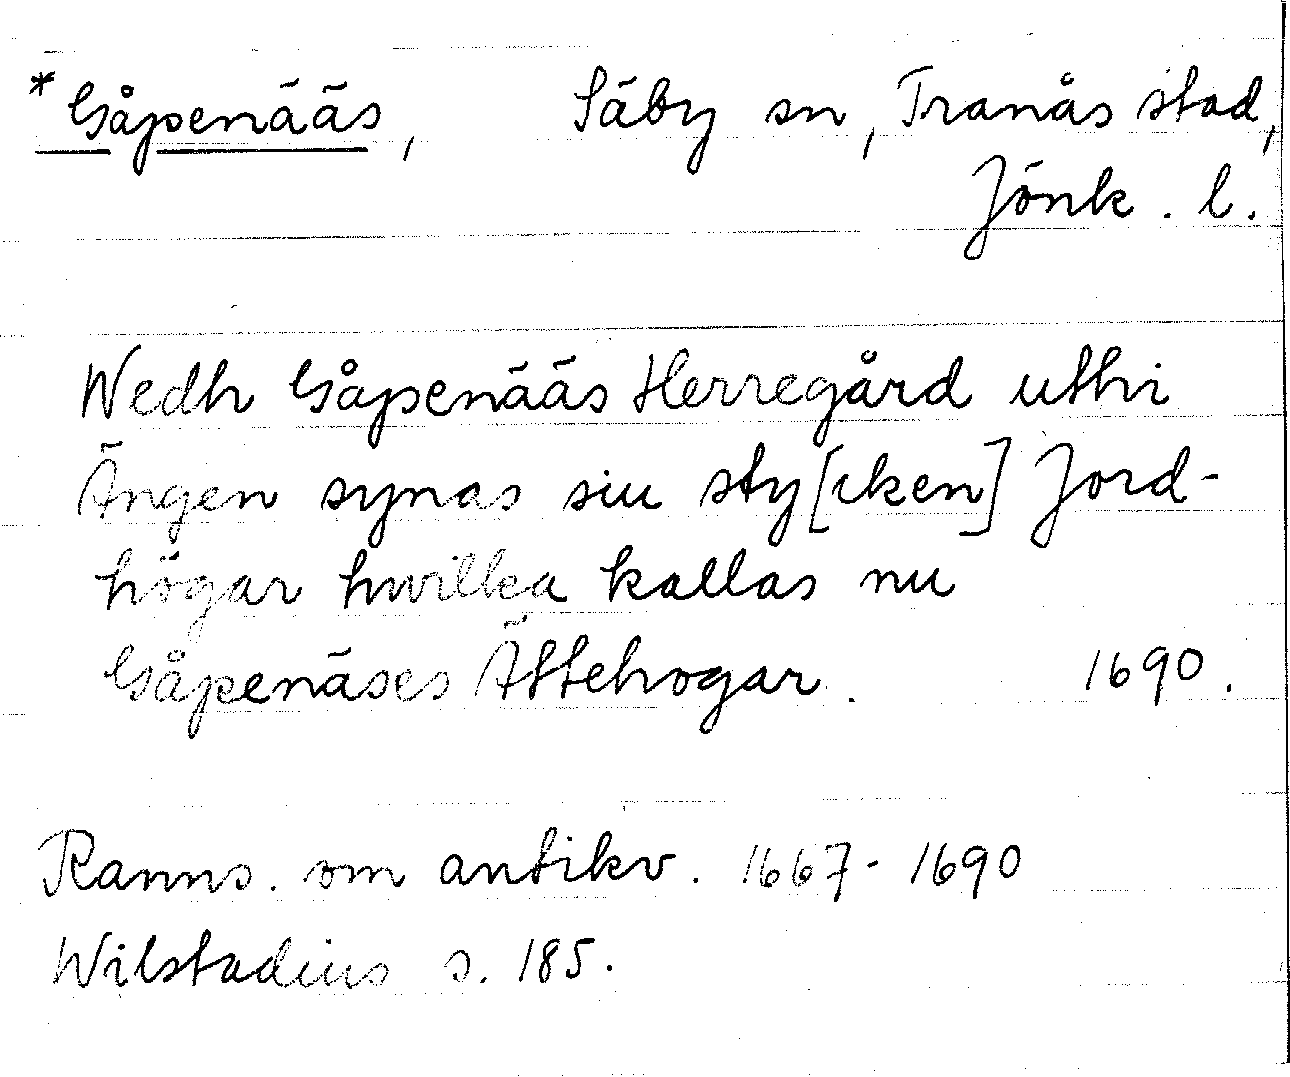 *Gåpenääs, Säby sn, Tranås stad,
Jönk. l.
Wedh Gåpenääs Herregård uthi
Ängen synas siu sty[cken] Jord-
högar hwilka kallas nu
Gåpenäses Ättehogar. 1690.
Ranns. om antikv. 1667-1690
Wilstadius s. 185.